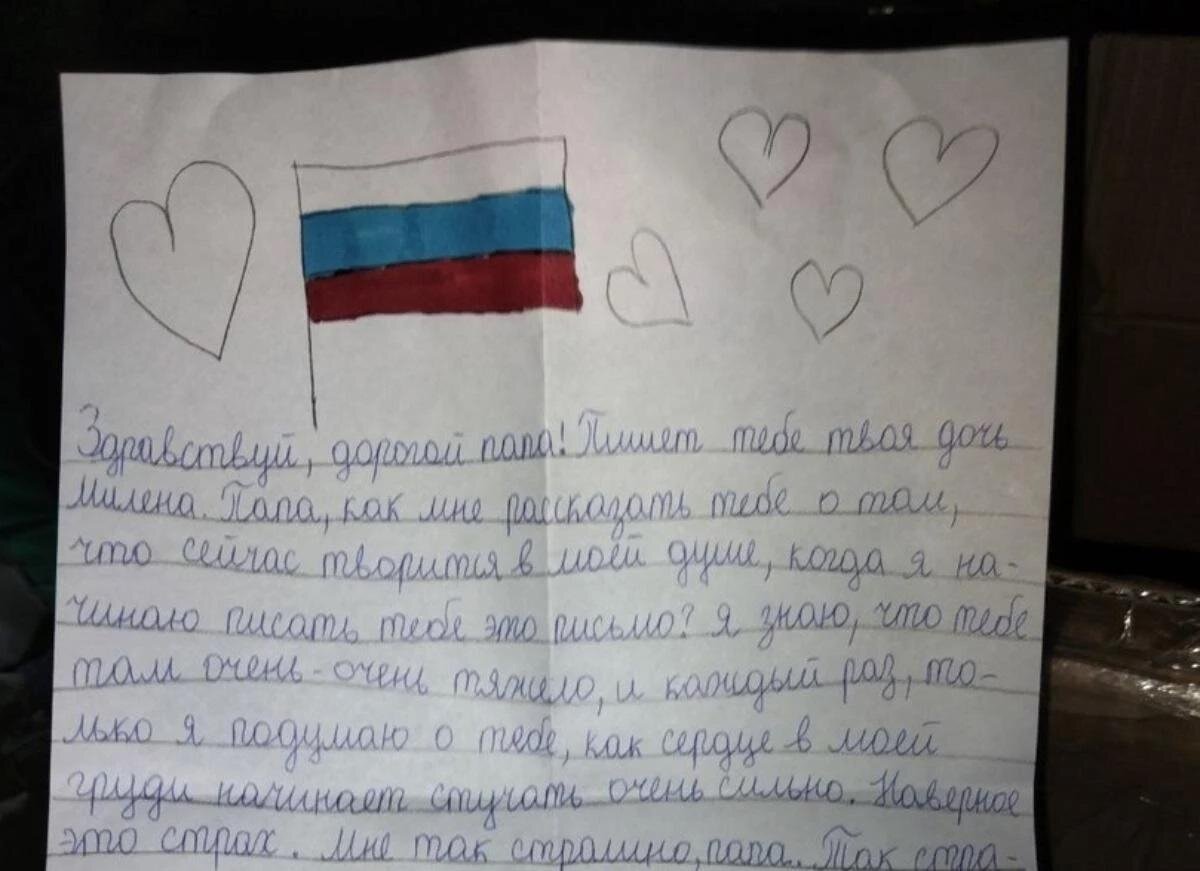 Здравствуй, дорогой папа! Пишет тебе твоя дочь
Милена. Папа, как мне рассказать тебе о том,
что сейчас творится в моей душе, когда я на-
чинаю писать тебе это письмо? Я знаю, что тебе
там очень-очень тяжело, и каждый раз, то-
лько я подумаю о тебе, как сердце в моей
груди начинает стучать очень сильно. Наверное
это страх. Мне так страшно, папа. Так стра-